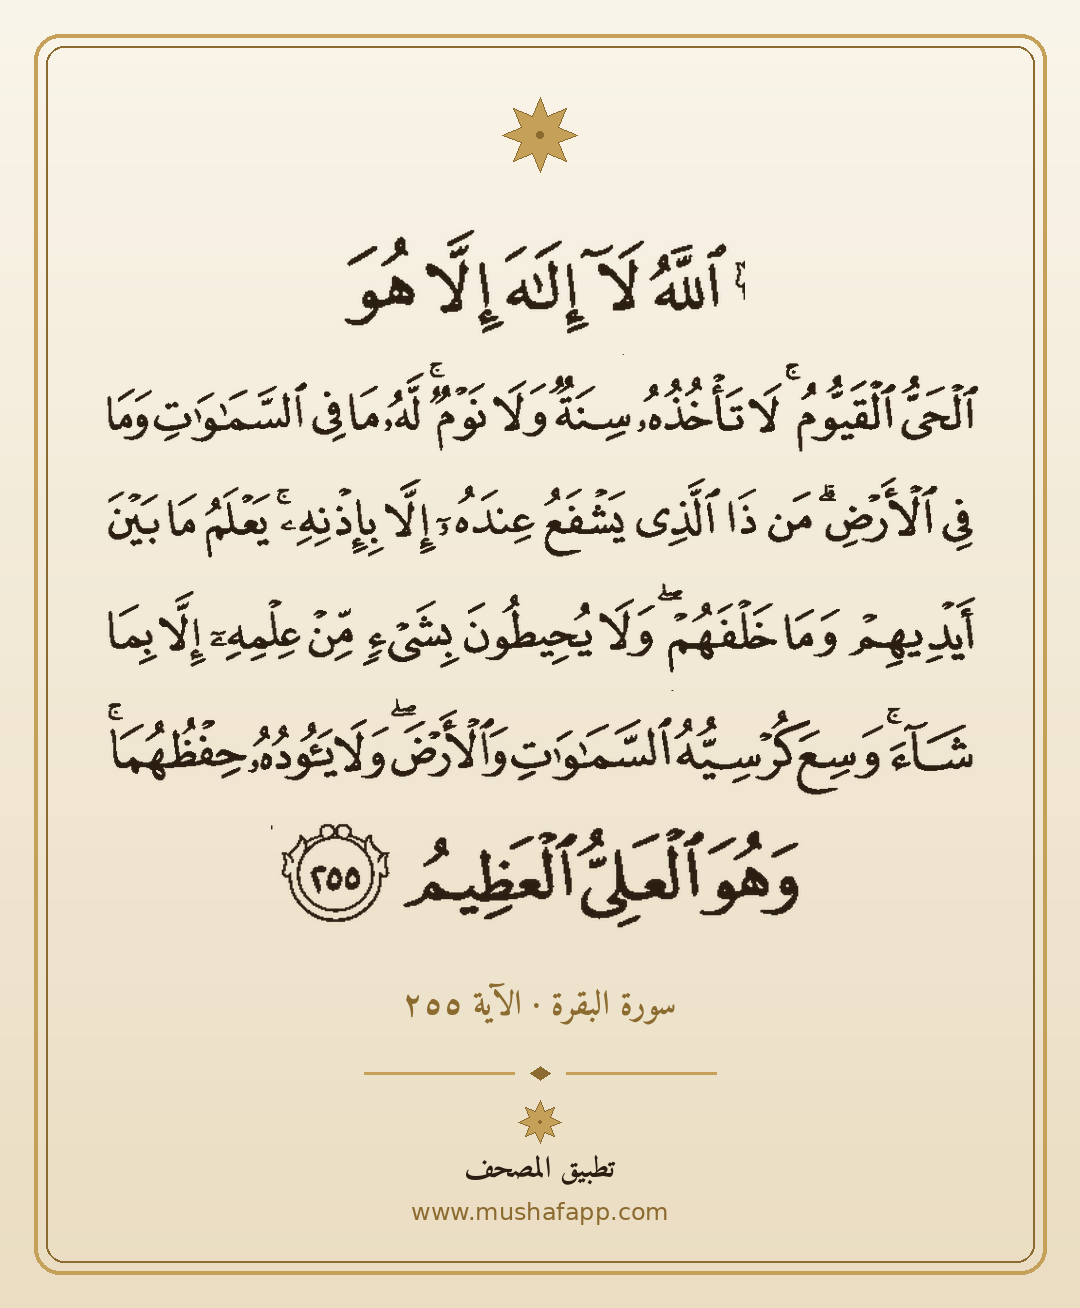 ٱللَّهُ لَآ إِلَٰهَ إِلَّا هُوَ
ٱلْحَىُّ ٱلْقَيُّومُ ۚ لَا تَأْخُذُهُۥ سِنَةٌ وَلَا نَوْمٌ ۚ لَّهُۥ مَا فِى ٱلسَّمَٰوَٰتِ وَمَا
فِى ٱلْأَرْضِ ۗ مَن ذَا ٱلَّذِى يَشْفَعُ عِندَهُۥٓ إِلَّا بِإِذْنِهِۦ ۚ يَعْلَمُ مَا بَيْنَ
أَيْدِيهِمْ وَمَا خَلْفَهُمْ ۖ وَلَا يُحِيطُونَ بِشَىْءٍ مِّنْ عِلْمِهِۦٓ إِلَّا بِمَا
شَآءَ ۚ وَسِعَ كُرْسِيُّهُ ٱلسَّمَٰوَٰتِ وَٱلْأَرْضَ ۖ وَلَا يَـُٔودُهُۥ حِفْظُهُمَا ۚ
وَهُوَ ٱلْعَلِىُّ ٱلْعَظِيمُ ٢٥٥
سورة البقرة · الآية ٢٥٥
تطبيق المصحف
www.mushafapp.com